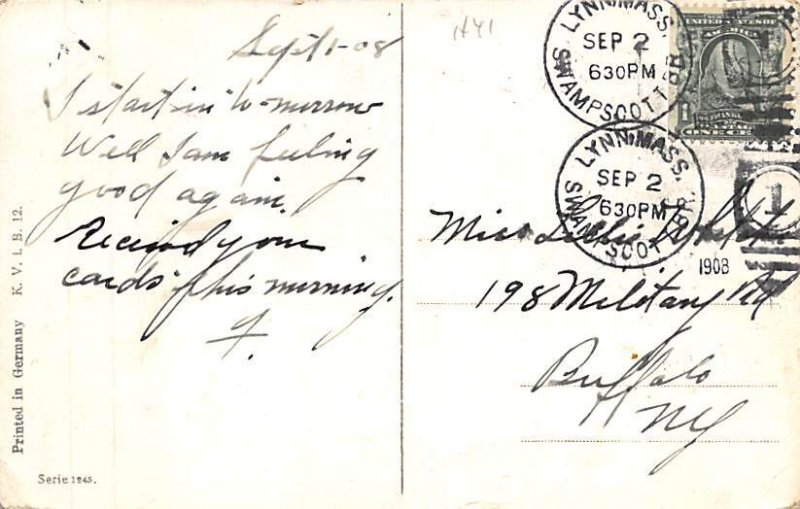 Sept 1-08
I start in to-morrow
Well I am feeling
good again.
Received your
cards this morning.
Printed in Germany K. V. i. B. 12.
Serie 1245.
A41
LYNN, MASS.
SEP 2
630PM
SWAMPSCOTT BR.
LYNN, MASS.
SEP 2
630PM
SWAMPSCOTT BR.
1908
1
UNITED STATES OF
AMERICA
ONE CENT
Miss
198 Military Rd
Buffalo
NY